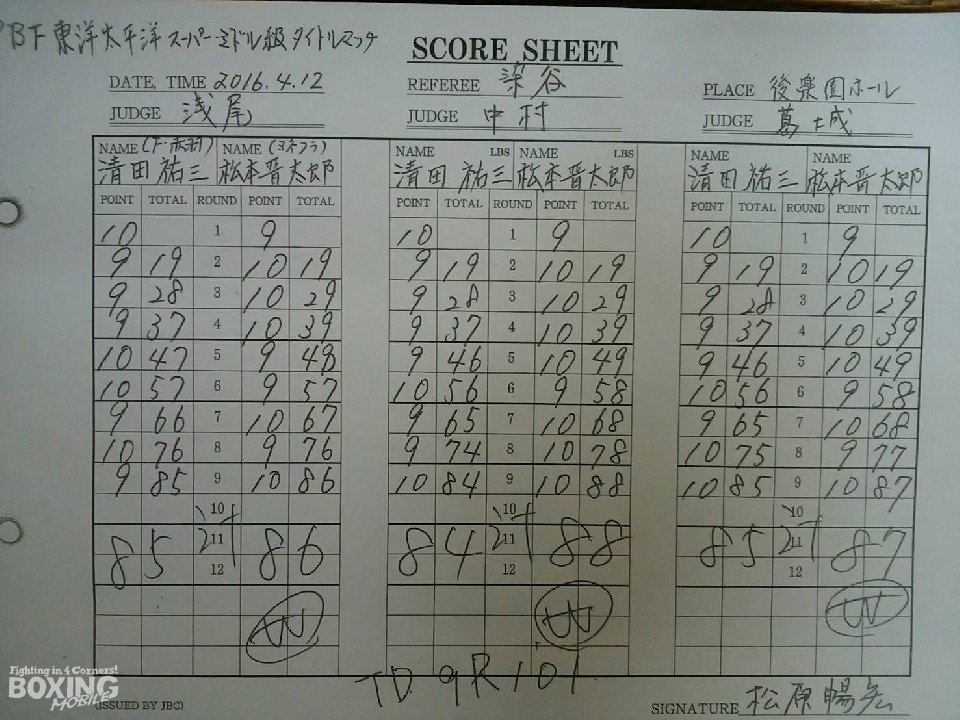 PBF東洋太平洋スーパーミドル級タイトルマッチ
SCORE SHEET
DATE, TIME 2016.4.12 REFEREE 染谷 PLACE 後楽園ホール
JUDGE 浅尾 JUDGE 中村 JUDGE 葛城
NAME NAME (ヨネクラ) NAME LBS NAME LBS NAME NAME
清田 祐三 松本晋太郎 清田 祐三 松本晋太郎 清田 祐三 松本晋太郎
POINT TOTAL ROUND POINT TOTAL POINT TOTAL ROUND POINT TOTAL POINT TOTAL ROUND POINT TOTAL
10 1 9 10 1 9 10 1 9
9 19 2 10 19 9 19 2 10 19 9 19 2 10 19
9 28 3 10 29 9 28 3 10 29 9 28 3 10 29
9 37 4 10 39 9 37 4 10 39 9 37 4 10 39
10 47 5 9 48 9 46 5 10 49 9 46 5 10 49
10 57 6 9 57 10 56 6 9 58 10 56 6 9 58
9 66 7 10 67 9 65 7 10 68 9 65 7 10 68
10 76 8 9 76 9 74 8 10 78 10 75 8 9 77
9 85 9 10 86 10 84 9 10 88 10 85 9 10 87
10 10 10
85 11 86 84 11 88 85 11 87
12 12 12
W W W
TD 9R 1 01
Fighting in 4 Corners!
BOXING
MOBILE
(ISSUED BY JBC) SIGNATURE 松原暢宏